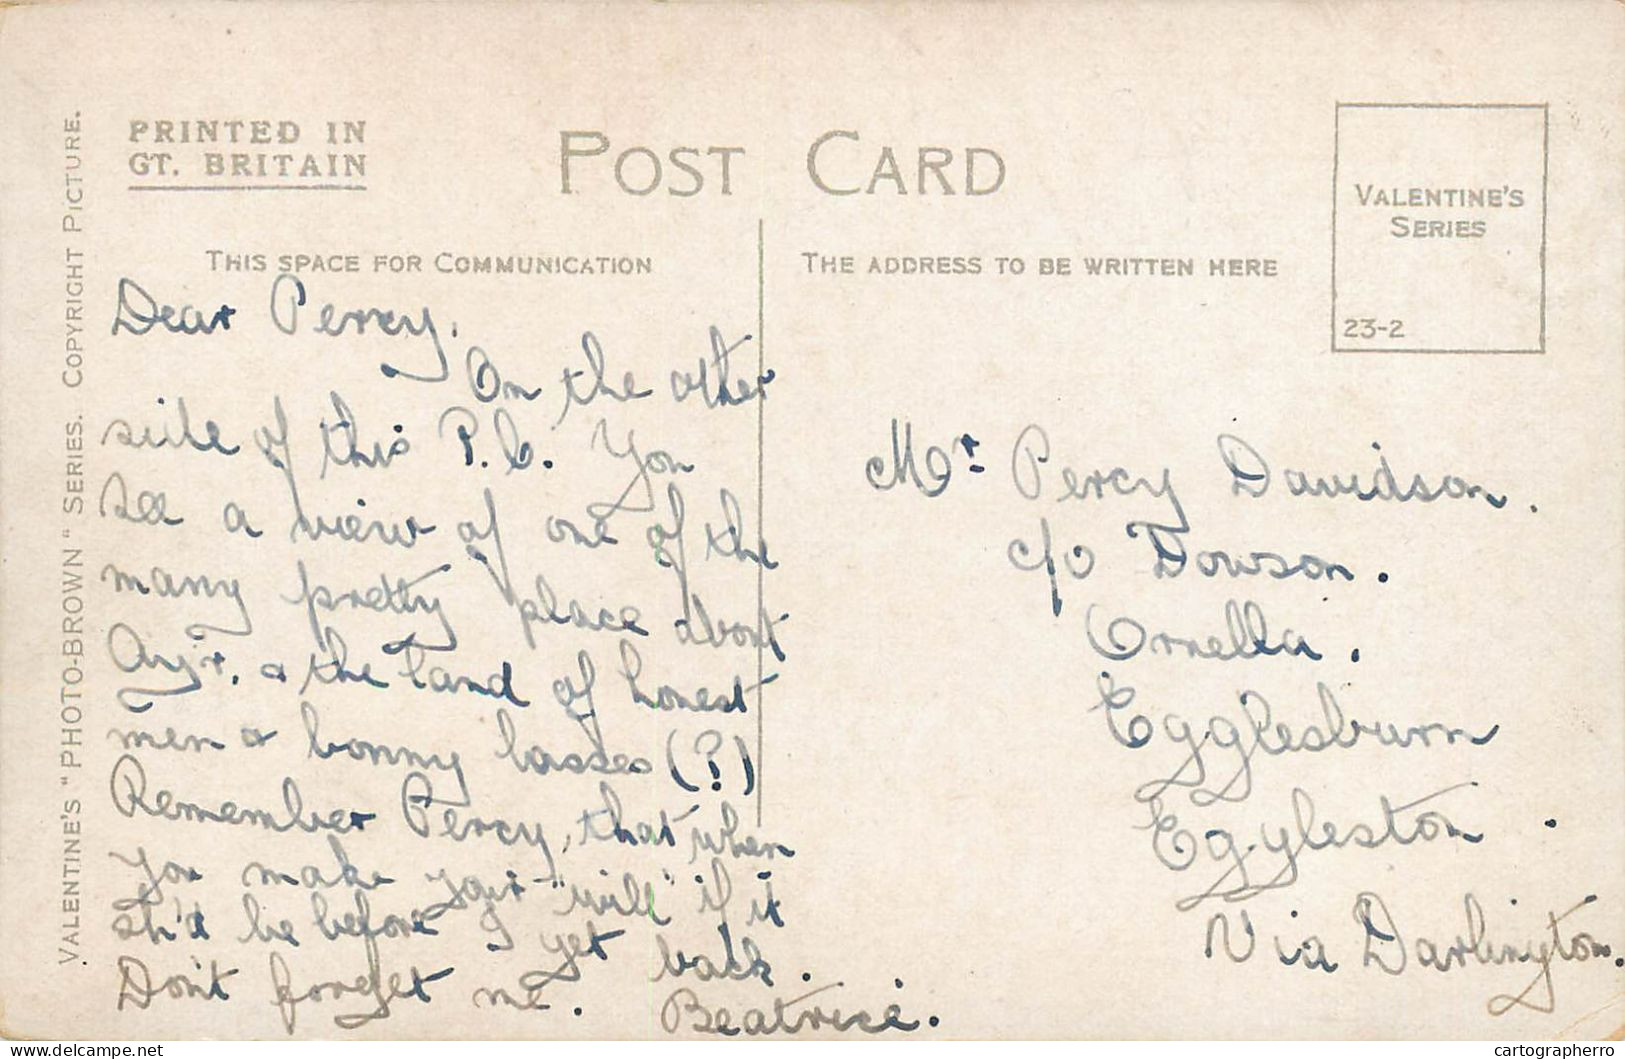 VALENTINE'S "PHOTO-BROWN" SERIES. COPYRIGHT PICTURE.
PRINTED IN
GT. BRITAIN
POST CARD
VALENTINE'S
SERIES
23-2
THIS SPACE FOR COMMUNICATION
THE ADDRESS TO BE WRITTEN HERE
Dear Percy.
On the other
side of this P.C. You
see a view of one of the
many pretty place about
Ayr. & the land of honest
men & bonny lasses (?)
Remember Percy, that when
you make your "will" if it
sh'd be before I get back.
Don't forget me. Beatrice.
Mr Percy Davidson.
c/o Dowson.
Ornella.
Egglesburn
Eggleston.
Via Darlington.
cartographerro